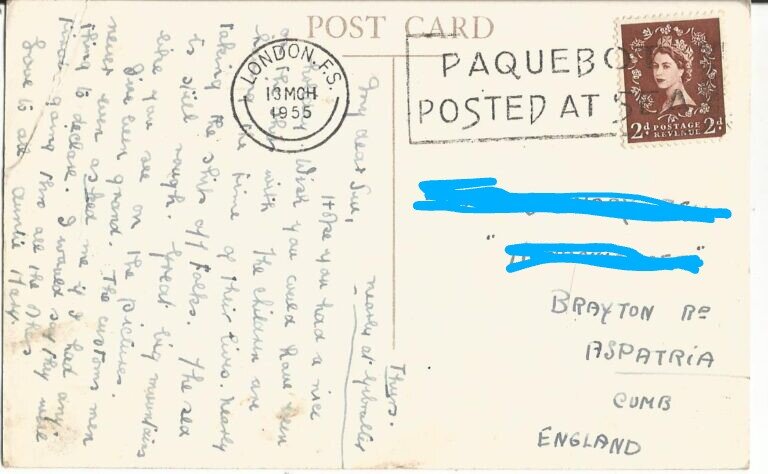 POST CARD
LONDON. F.S.
13 MCH
1955
PAQUEBOT
POSTED AT SEA
2d POSTAGE REVENUE 2d
Thurs.
nearly at Gibraltar
My dear Sue,
Hope you had a nice
Wish you could have been
with the children are
the time of their lives. Nearly
taking the ship off talks. The sea
is still rough. Great big mountains
like you see on the pictures.
I've been grand. The customs men
never even asked me if I had any
thing to declare. I would say they
all the
Love to all Auntie Mary.
BRAYTON RD
ASPATRIA
CUMB
ENGLAND